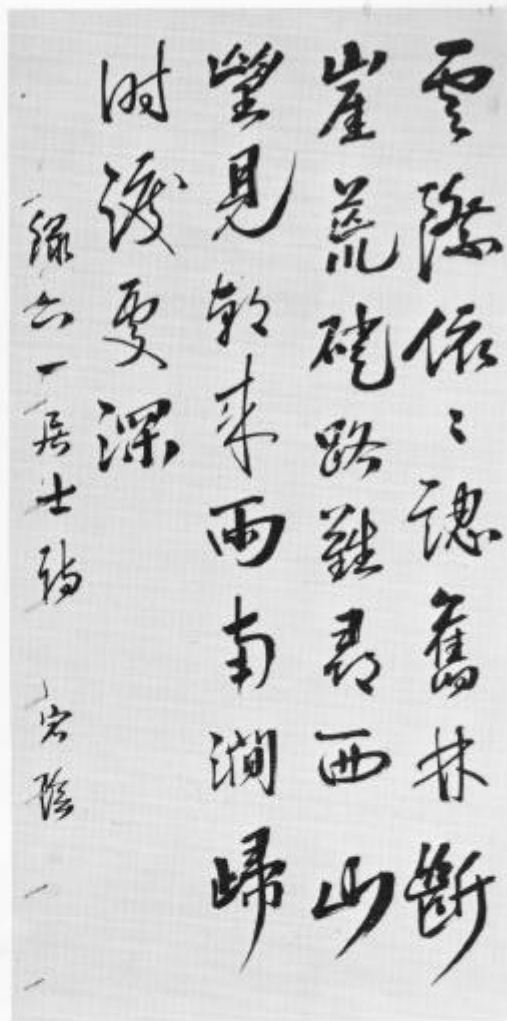 雲際依〻認舊林斷
崖荒磴路難尋西山
望見朝来雨南澗歸
时渡處深
錄六一居士詩